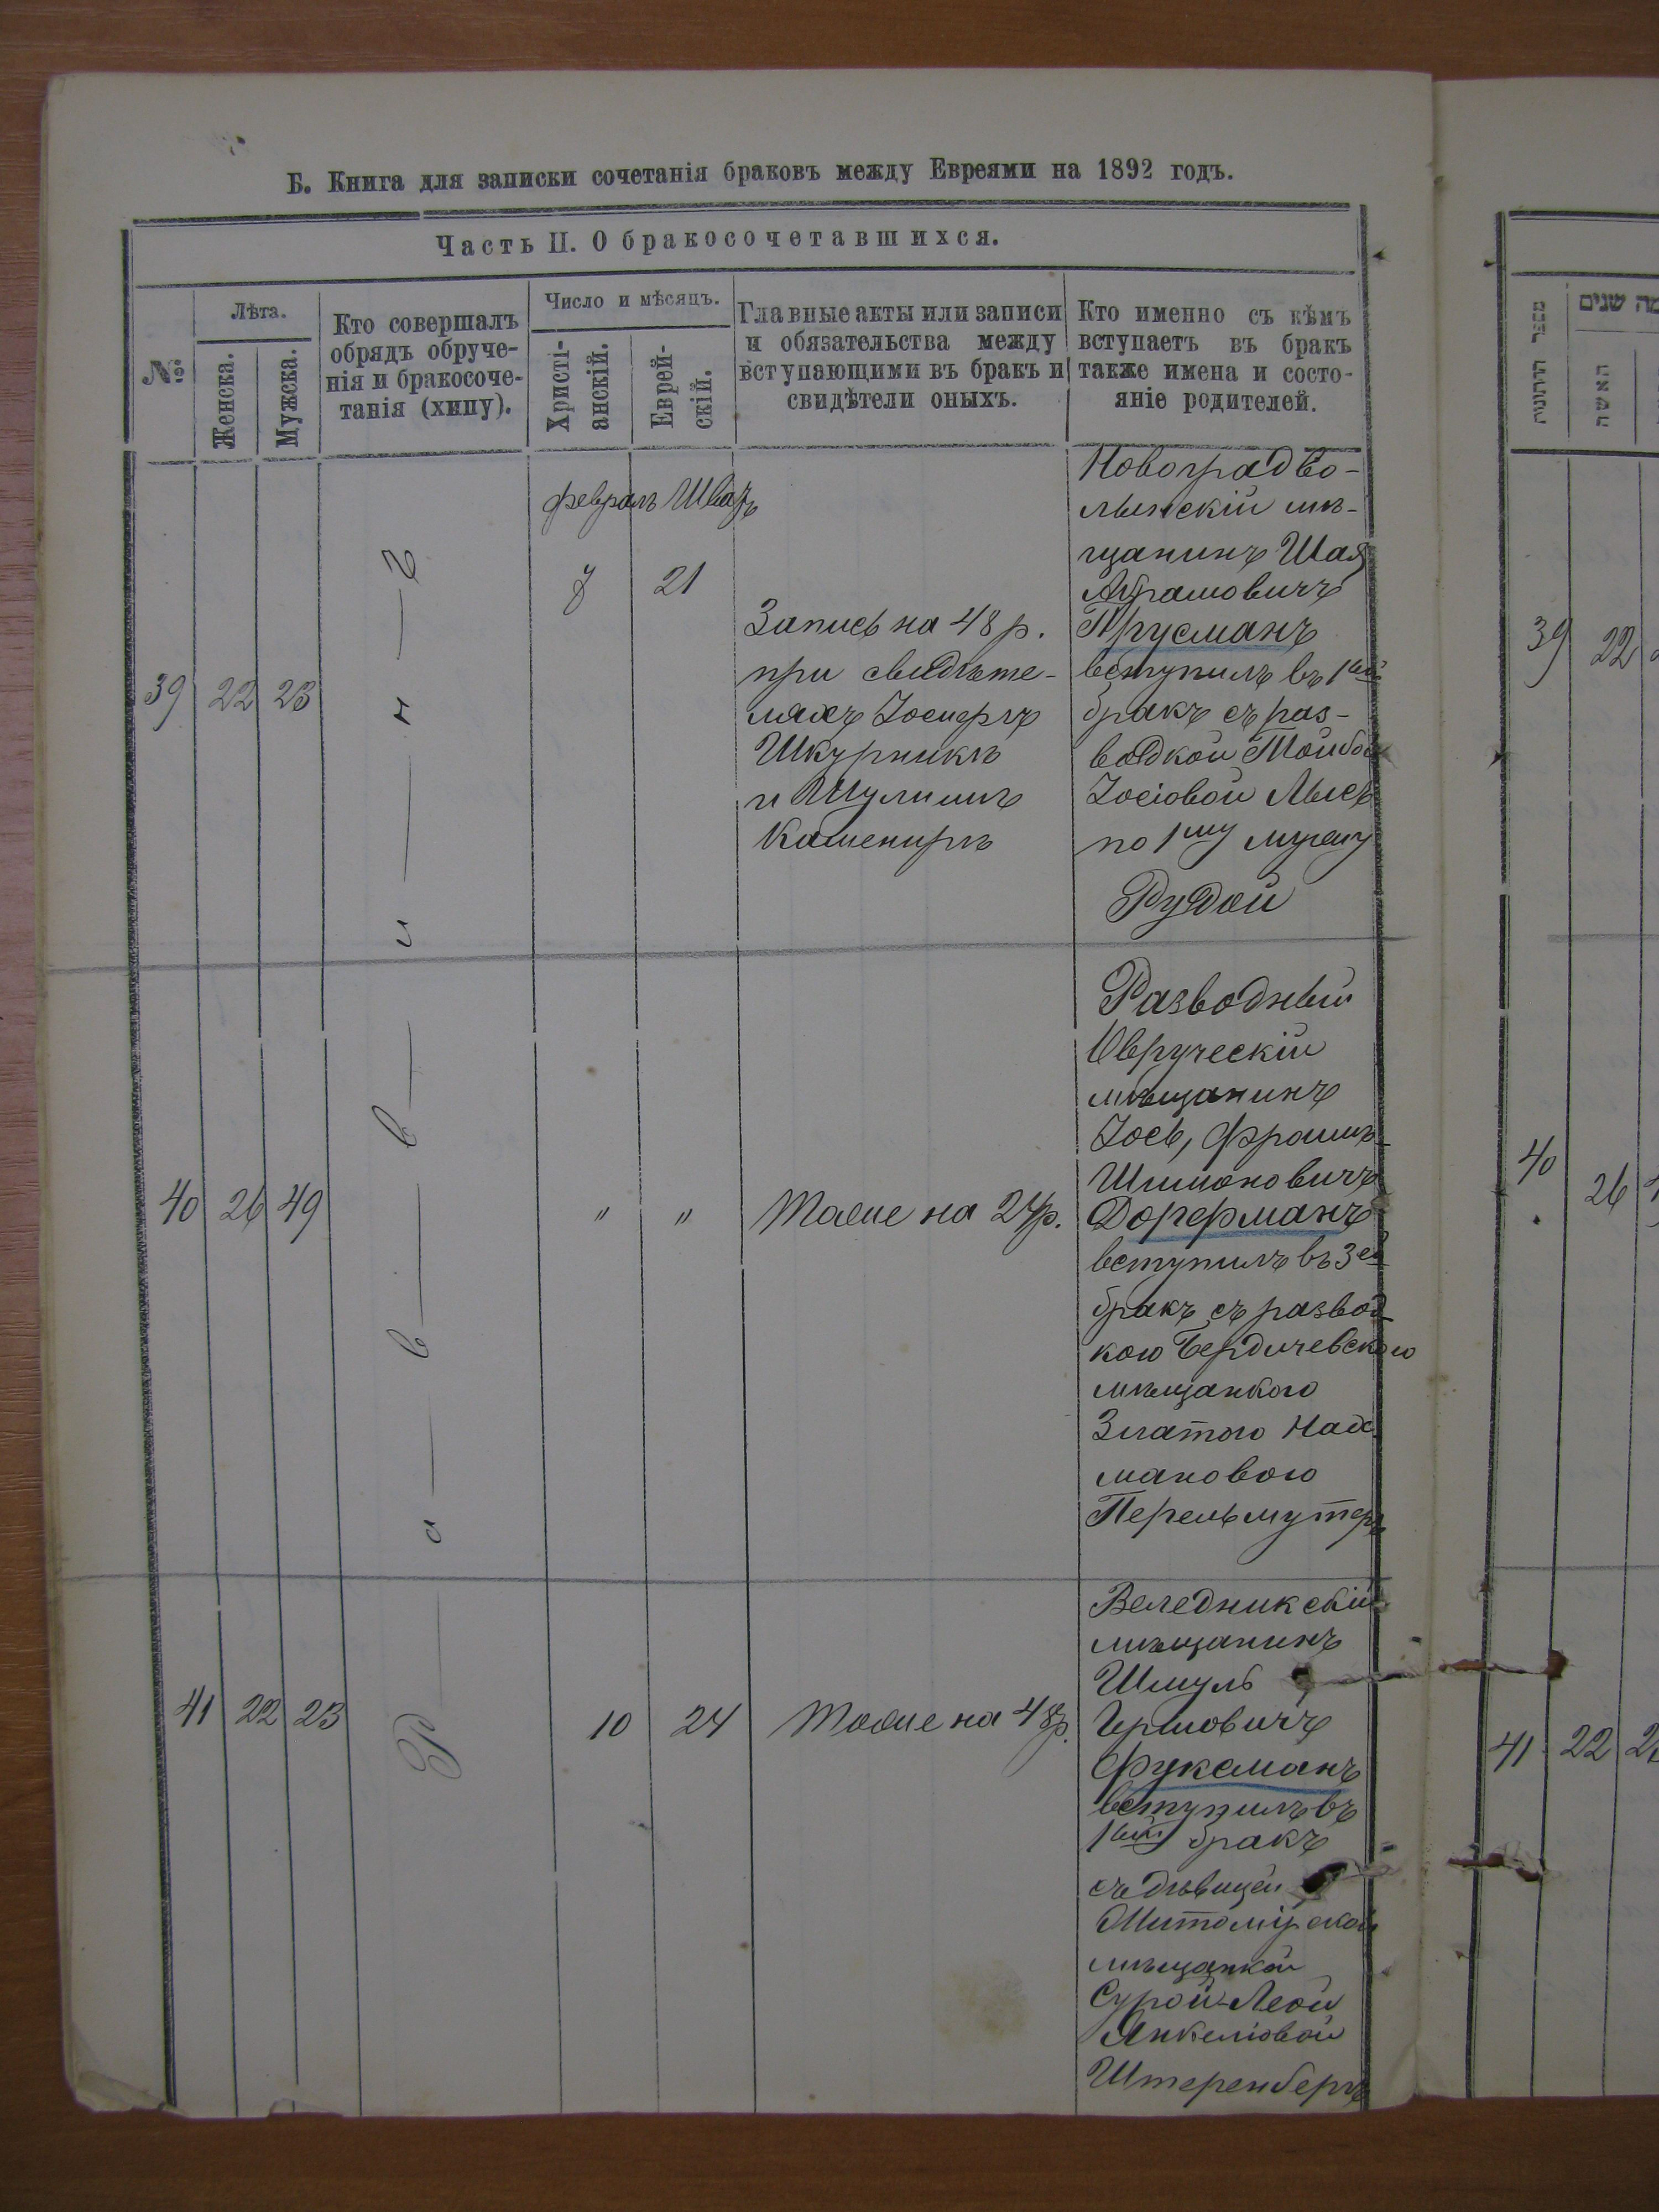 Б. Книга для записки сочетанія браковъ между Евреями на 1892 годъ.
Часть II. О бракосочетавшихся.
№
Лѣта.
Женска.
Мужска.
Кто совершалъ
обрядъ обруче-
нія и бракосоче-
танія (хипу).
Число и мѣсяцъ.
Христі-
анскій.
Еврей-
скій.
Главные акты или записи
и обязательства между
вступающими въ бракъ и
свидѣтели оныхъ.
Кто именно съ кѣмъ
вступаетъ въ бракъ
также имена и состо-
яніе родителей.
Р а в в и н ъ
39 22 23
февраль Шватъ
21
Запись на 48 р.
при свидѣте-
ляхъ Іосперъ
Шкурникъ
и Шулимъ
Кашениръ
Новоградво-
лынскій мѣ-
щанинъ Шая
Абрамовичъ
Трусманъ
вступилъ въ 1вый
бракъ съ раз-
водкой Тойбой
Іосіовой
по 1му мужу
Рудой
40 26 49
" "
Тоже на 24р.
Разводный
Овручскій
мѣщанинъ
Іось, Фроимъ
Шимоновичъ
Дорферманъ
вступилъ въ 3ей
бракъ съ развод-
кою Бердичевскою
мѣщанкою
Златою Нах
мановою
Перельмутеръ
41 22 23
10 24
Тоже на 48р.
Веледникскій
мѣщанинъ
Шмуль
Гершовичъ
Фуксманъ
вступилъ въ
1вый бракъ
съ дѣвицей
Житомірской
мѣщанкой
Сурой-Леой
Янкеліовой
Штеренбергъ
מספר החתונה
כמה שנים
האשה
39 22
40 26
41 22